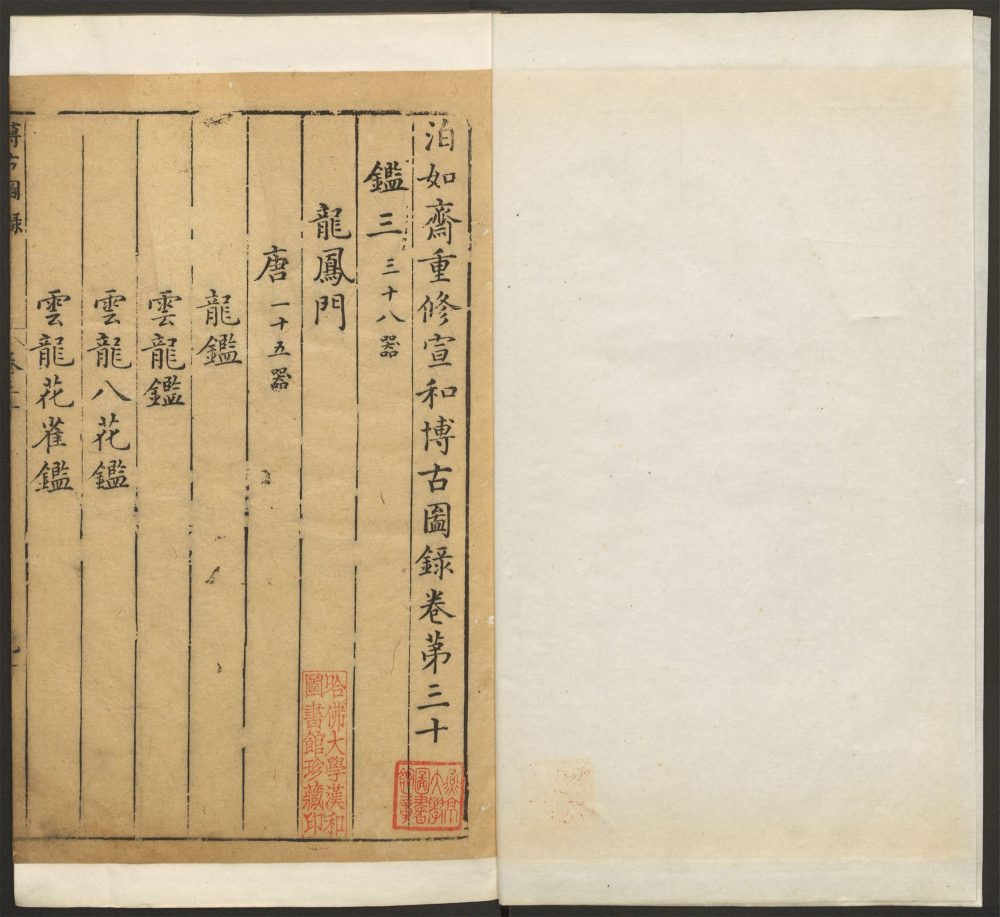 泊如齋重修宣和博古圖錄卷第三十
鑑三 三十八器
龍鳳門
唐 一十五器
龍鑑
雲龍鑑
雲龍八花鑑
雲龍花雀鑑
博古圖錄
哈佛大學漢和
圖書館珍藏印